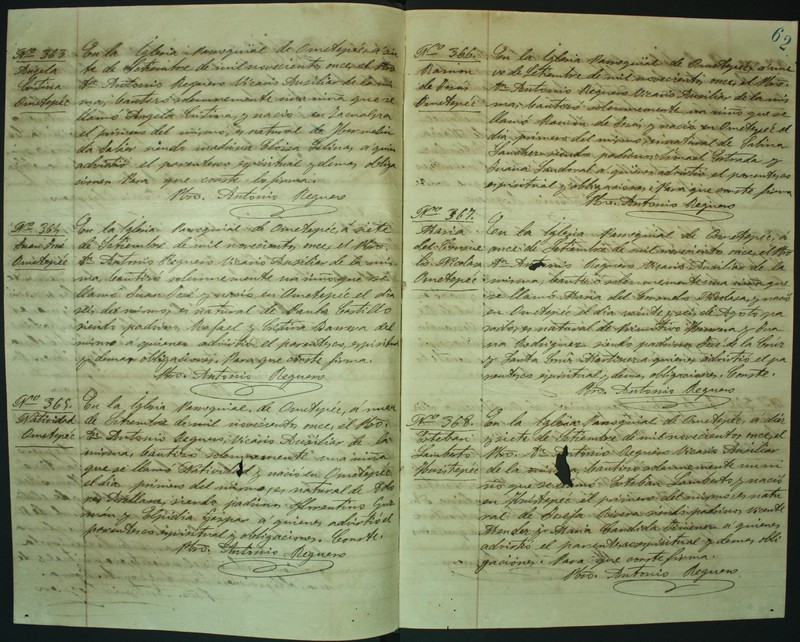 Nro. 363
Angela
Cristina
Ometepéc
En la Iglesia Parroquial de Ometepéc, a sie
te de Setiembre de mil novecientos once, el Pbro.
Dn. Antonio Reguero Vicario Auxiliar de la mis
ma, bautizó solemnemente una niña que se
llamó Angela Cristina, y nació en
el primero del mismo, es natural de Hermelin
da siendo madrina Eloisa a quien
advirtió el parentesco espiritual y demas obliga
ciones. Para que conste lo firma.
Pbro. Antonio Reguero
Nro. 364
Juan José
Ometepéc
En la Iglesia Parroquial de Ometepéc, á siete
de Setiembre de mil novecientos once, el Pbro.
Dn. Antonio Reguero Vicario Auxiliar de la mis
ma, bautizó solemnemente un niño que se
llamó Juan José y nació en Ometepéc el dia
seis del mismo, es natural de Paula Castillo
siendo padrinos Rafael y Cristina Barrera del
mismo a quienes advirtió el parentesco, espiritual
y demas obligaciones. Para que conste firma.
Pbro. Antonio Reguero
Nro. 365.
Natividad
Ometepéc
En la Iglesia Parroquial de Ometepéc, a nueve
de Setiembre de mil novecientos once, el Pbro.
Dn. Antonio Reguero, Vicario Auxiliar de la
misma, bautizó solemnemente una niña
que se llamó Natividad y nació en Ometepéc
el dia primero del mismo, es natural de
Arellano, siendo padrinos Florentino Guz
mán y Elpidia Gaspar a quienes advirtió el
parentesco espiritual y obligaciones. Conste.
Pbro. Antonio Reguero
62
Nro. 366.
Ramon
de Jesús
Ometepéc
En la Iglesia Parroquial de Ometepéc, a nue
ve de Setiembre de mil novecientos once, el Pbro.
Dn. Antonio Reguero Vicario Auxiliar de la mis
ma, bautizó solemnemente un niño que se
llamó Ramón de Jesús, y nació en Ometepéc el
dia primero del mismo, es natural de Sabina
Sanchez siendo padrinos Ismael Estrada y
Juana Sandoval a quienes advirtió el parentesco
espiritual y obligaciones. Para que conste firma
Pbro. Antonio Reguero
Nro. 367.
Maria
del Consue
lo Nicolasa
Ometepéc
En la Iglesia Parroquial de Ometepéc, á
once de Setiembre de mil novecientos once, el Pbro.
Dn. Antonio Reguero Vicario Auxiliar de la
misma, bautizó solemnemente una niña que
se llamó Maria del Consuelo Nicolasa, y nació
en Ometepéc el dia veinte y seis de Agosto pa
sado, es natural de Primitivo Herrera y Jua
na Rodriguez siendo padrinos José de la Cruz
y Santa Cruz Martinez a quienes advirtió el pa
rentesco espiritual y demas obligaciones. Conste.
Pbro. Antonio Reguero
Nro. 368.
Esteban
Lamberto
Huistepéc
En la Iglesia Parroquial de Ometepéc, á diez
y siete de Setiembre de mil novecientos once, el
Pbro. Dn. Antonio Reguero Vicario Auxiliar
de la misma, bautizó solemnemente un ni
ño que se llamó Esteban Lamberto y nació
en Huistepéc el primero del mismo es natu
ral de siendo padrinos Vicente
Mendez y Maria Candida a quienes
advirtió el parentesco espiritual y demas obli
gaciones. Para que conste firma.
Pbro. Antonio Reguero